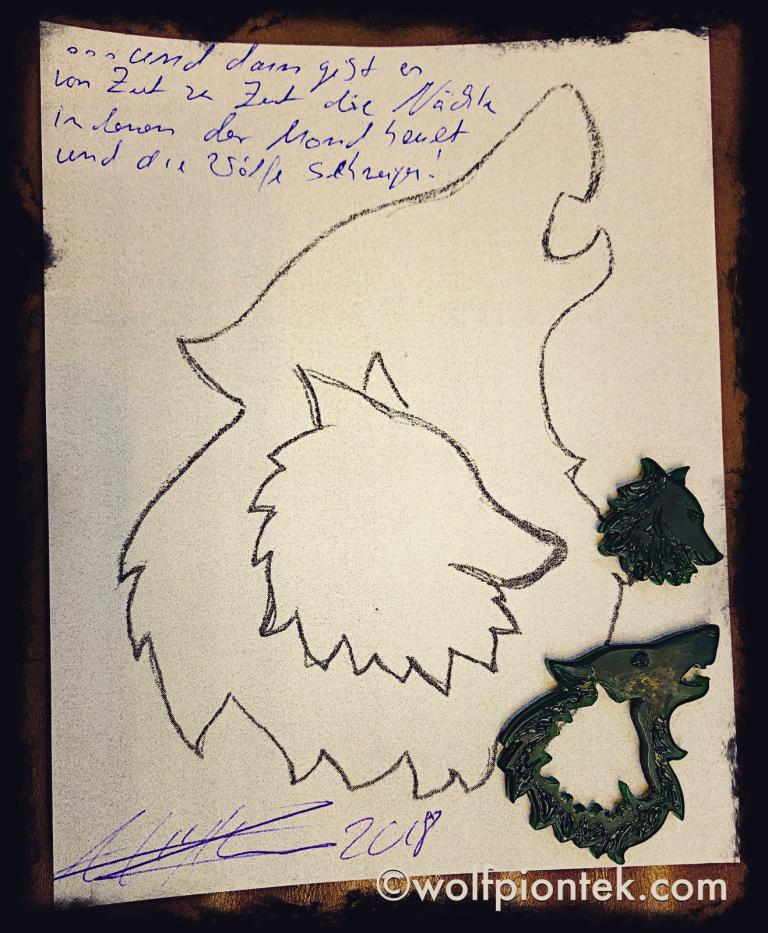 ... und dann gibt es
von Zeit zu Zeit die Nächte
in denen der Mond heult
und die Wölfe schweigen!
2018
©wolfpiontek.com